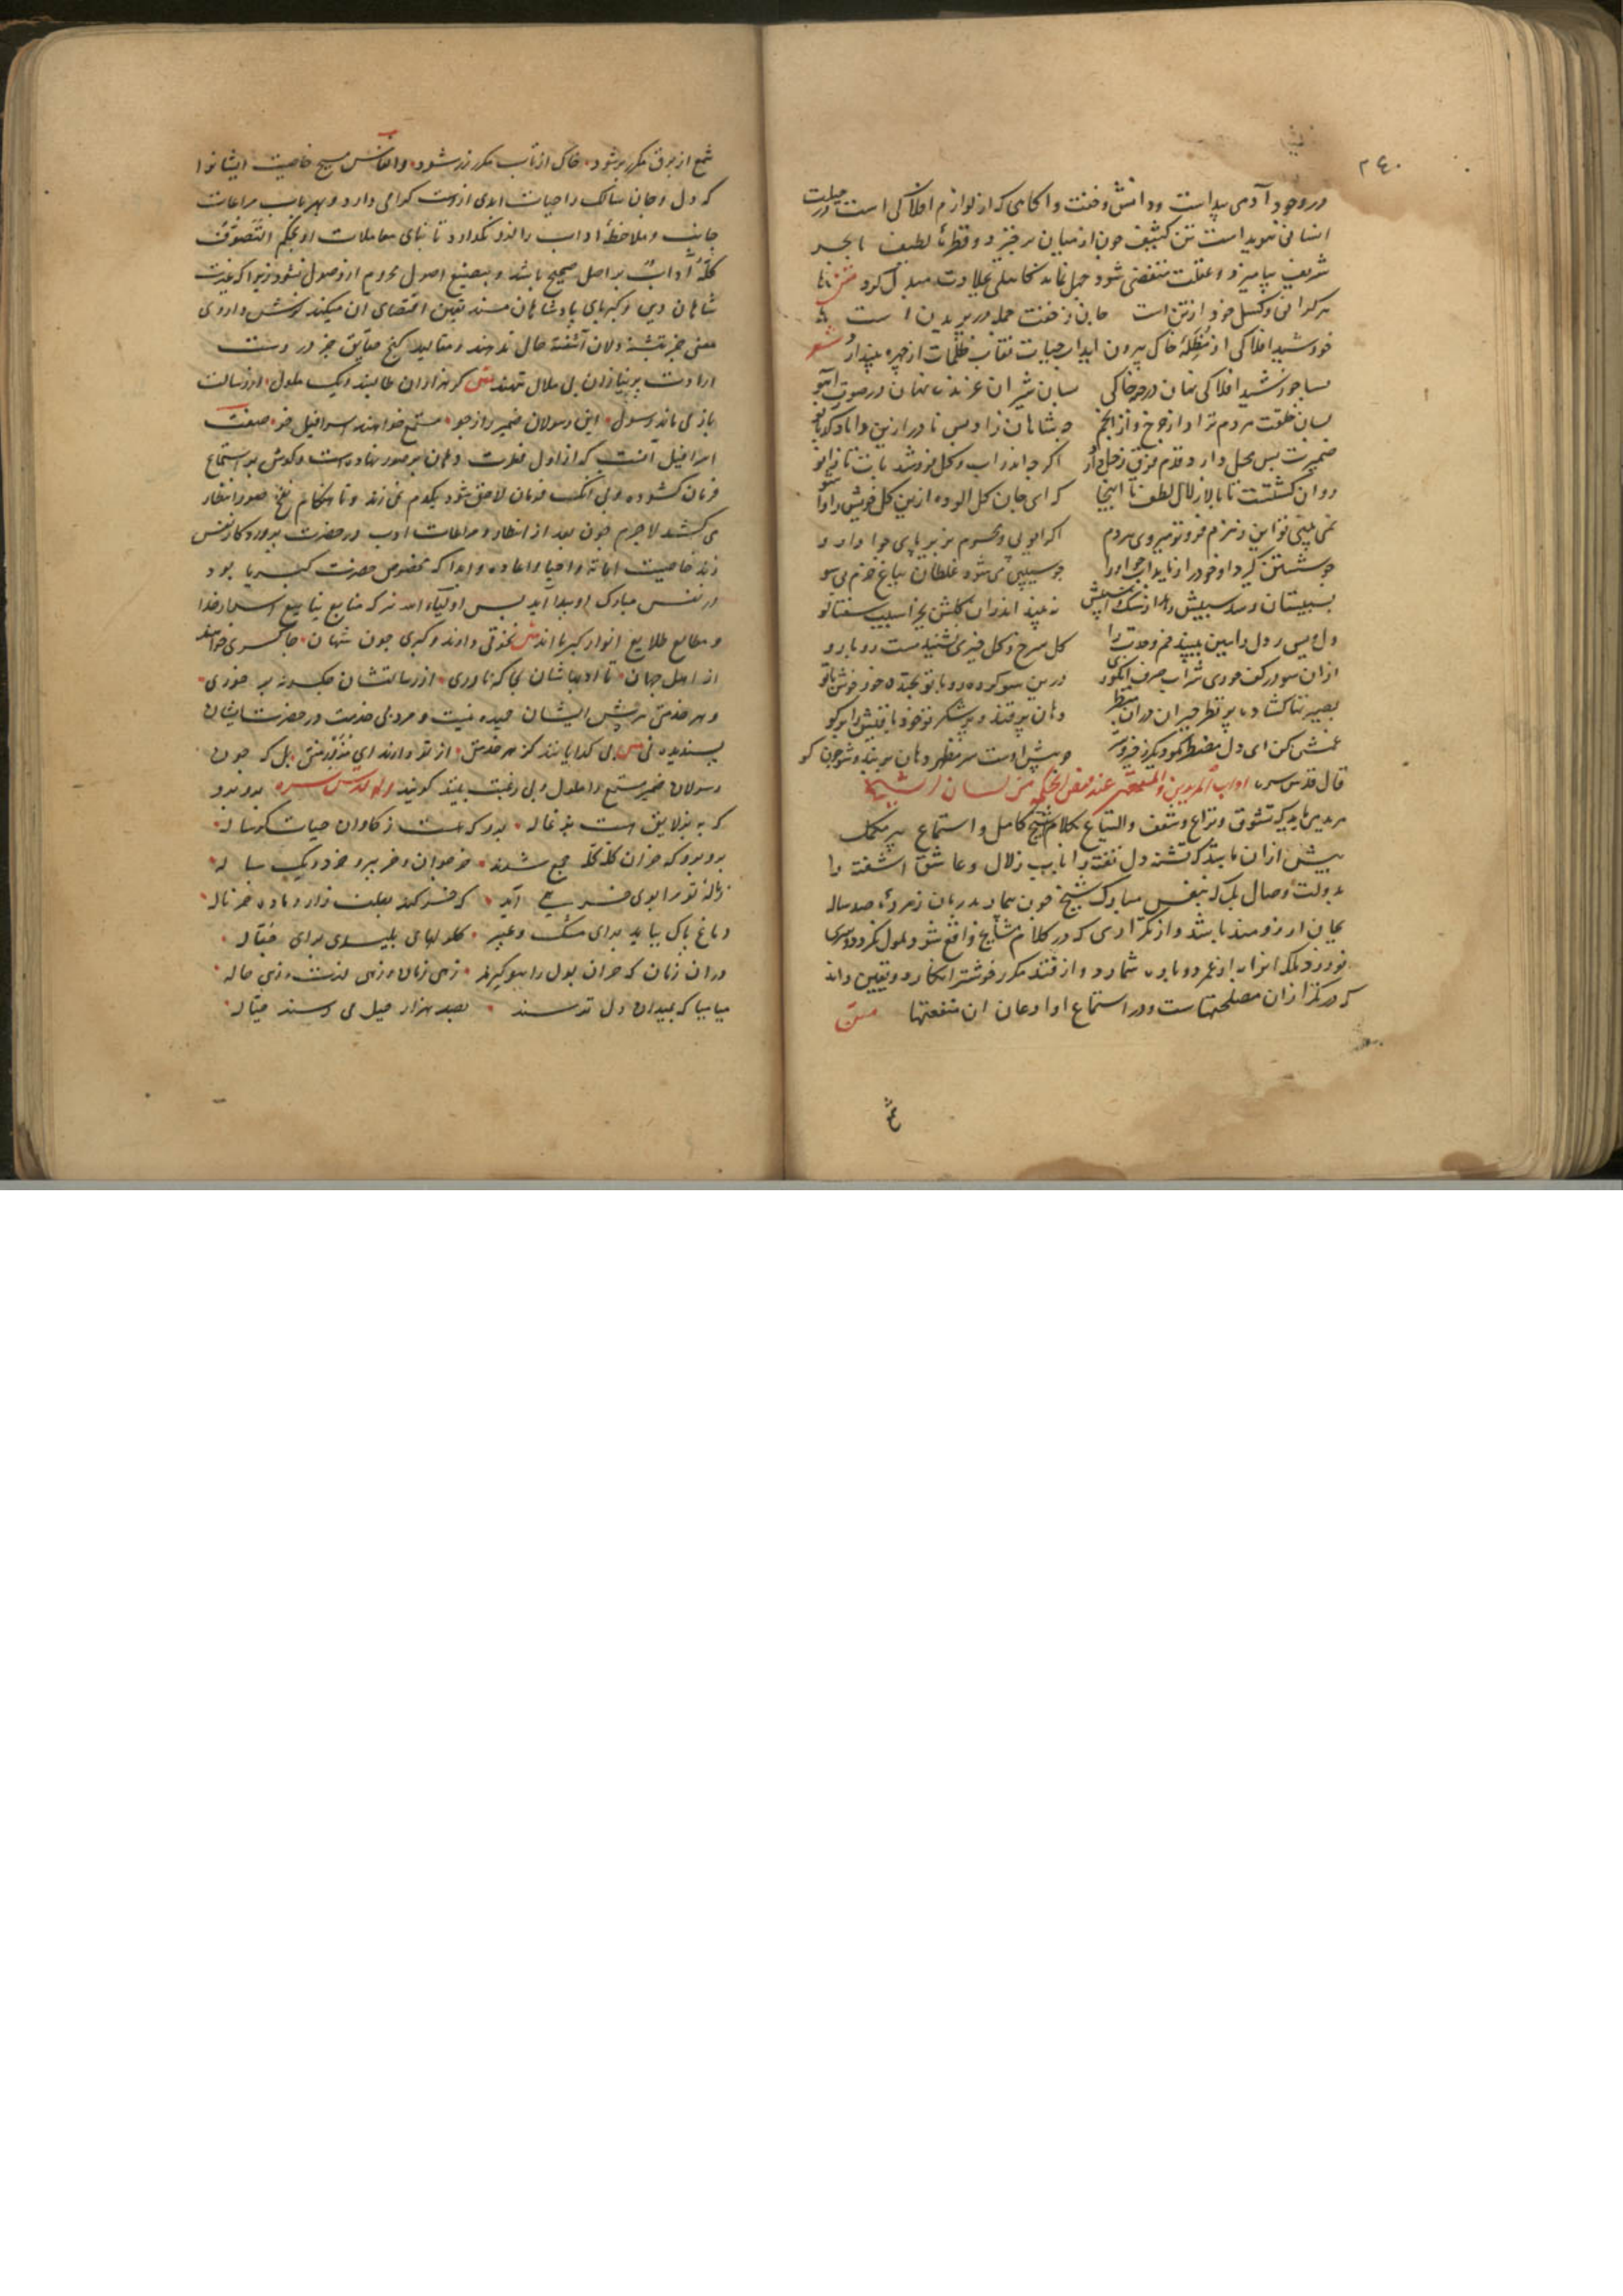 ۲۴۰
در وجود آدمی پیداست و دانش و خفت و آکاهی که از لوازم افلاکی است در جبلت
انسانی هویداست تن کثیف چون از میان برخیزد و قطرهٔ لطیف با بحر
شریف بیامیزد و غفلت منقضی شود جهل نماند کاهلی بجلادت مبدل کردد متن تا
هر کرانی و کسل خود از تن است جان ز خفت جمله در پریدن است
خورشید افلاکی از مظلهٔ خاک بیرون آید آب حیات نقاب ظلمات از چهره بیندازد شعر
بسا خورشید افلاکی نهان در جو خاکی بسان شیران غرنده نهان در صورت آهو
بسان خلقت مردم نزاد از چرخ و از انجم
ضمیرت بس محل دارد قدم فوق زحل دارد اکر چه اندر آب و کل فروشد پات تا زانو
روان کشتست تا بالا زلال لطف تا اینجا که ای جان کل آلوده ازین کل خویش را وا شو
نمی بینی تو این زمزم فروتر میروی هر دم اکر ایوبی و محرم بزیر پای جو دارو
چو شستن کیرد او خود را رباید آب جو او را چو سیبی می شود غلطان بباغ خرم بی سو
بسیبستان رسد سیبش رهد از سنک آسیبش نبیند اندران کلشن بجز آسیب شفتالو
دل ویس ز دل رامین ببیند خرم وحدت را کل سرخ و کل خیری نشیند مست رو با رو
ازان سو در کف حوری شراب صرف انکوری درین سو کرده رو با تو بخنده خود خوش تو
بصیرتها کشاده بر نظر حیران دران منظر دهان پر قند و پر شکر تو خود باقیش را برکو
خمش کن ای دل مضطر مکو دیکر ز خیر و شر چو پیش اوست سر مظهر دهان بربند و شو چون کو
قال قدس سره آداب المریدین و المستمعین عند فیض الحکم من لسان الشیخ
مرید می باید که تشوق و نزاع و شعف و التیاع بکلام شیخ کامل و استماع پیر مکمل
بیش ازان باشد که تشنه دل تفته را بآب زلال و عاشق آشفته را
بدولت وصال بلکه بنفس مبارک شیخ چون بیمار بدرمان و مردهٔ صد ساله
بجان آرزومند باشد و از تکراری که در کلام مشایخ واقع شود ملول نکردد و سری
نورزد بلکه آنرا از عمر دوباره شمارد و از قند مکرر خوشتر انکارد و یقین داند
که در تکرار آن مصلحتهاست و در استماع او اذعان آن منفعتها متن
شمع از برق مکرر بر شود خاک از تاب مکرر زر شود و انفاس مسیح خاصیت ایشانرا
که دل و جان سالک را حیات ابدی ازوست کرامی دارد و بهر باب مراعات
جانب و ملاحظهٔ آداب را فرو نکذارد تا بنای معاملات او بحکم التصوف
کله آداب بر اصل صحیح باشد و بتضییع اصول محروم از وصول نشود زیرا که عزت
شاهان دین و کبرهای پادشاهان مسند یقین اقتضای آن میکند که شش داروی
معنی جز بتشنه دلان آشفته حال ندهند و مقالید کنج حقایق جز در دست
ارادت پر نیازان بی ملال ننهند متن کر هزاران طالبند و یک ملول از رسالت
باز می ماند رسول این رسولان ضمیر راز جو مستمع خواهند اسرافیل خو صفت
اسرافیل آنست که از اول فطرت دهان بر صور نهاده است و کوش بر استماع
فرمان کشوده و بی آنکه فرمان لاحق شود یکدم نمی زند و تا هنکام نفخ صور انتظار
می کشد لاجرم چون بعد از انتظار و مراعات ادب در حضرت پروردکار نفس
زند خاصیت اماته و احیا و اعاده و ابدا که مخصوص حضرت کبریا بود
در نفس مبارک او پیدا آید پس اولیاء الله نیز که منابع ینابیع اسرار خدا
و مطالع طلایع انوار کبریااند متن نخوتی دارند و کبری چون شهان چاکری خواهند
از اهل جهان تا ادبهاشان بجا که ناوری از رسالتشان چکونه بر خوری
و هر خدمتی بر پیش ایشان حمیده نیست و هر بی خدمت در حضرت ایشان
پسندیده نی متن بی کدایانند کز هر خدمتی از تو دارند ای مزور منتی بل که چون
رسولان ضمیر مستمع را ملول و بی رغبت بینند کویند وله قدس سره برو برو
که به بز لایق است بزغاله برو که هست ز کاوان حیات کوساله
برو برو که خران کله کله جمع شدند خر جوان و خر پیر و خر دو یک ساله
ز نالهٔ تو مرا بوی خر همی آید که خر کند بعلف زار و ماده خر ناله
دماغ پاک بباید برای مشک و عبیر کلوهای پلیدی برای جلاله
دران زمان که خران بول را ببو کیرند زهی زمان و زهی لذت و زهی حاله
میا میا که بمیدان دل خران نرسند بصد هزار حیل می رسند خیاله